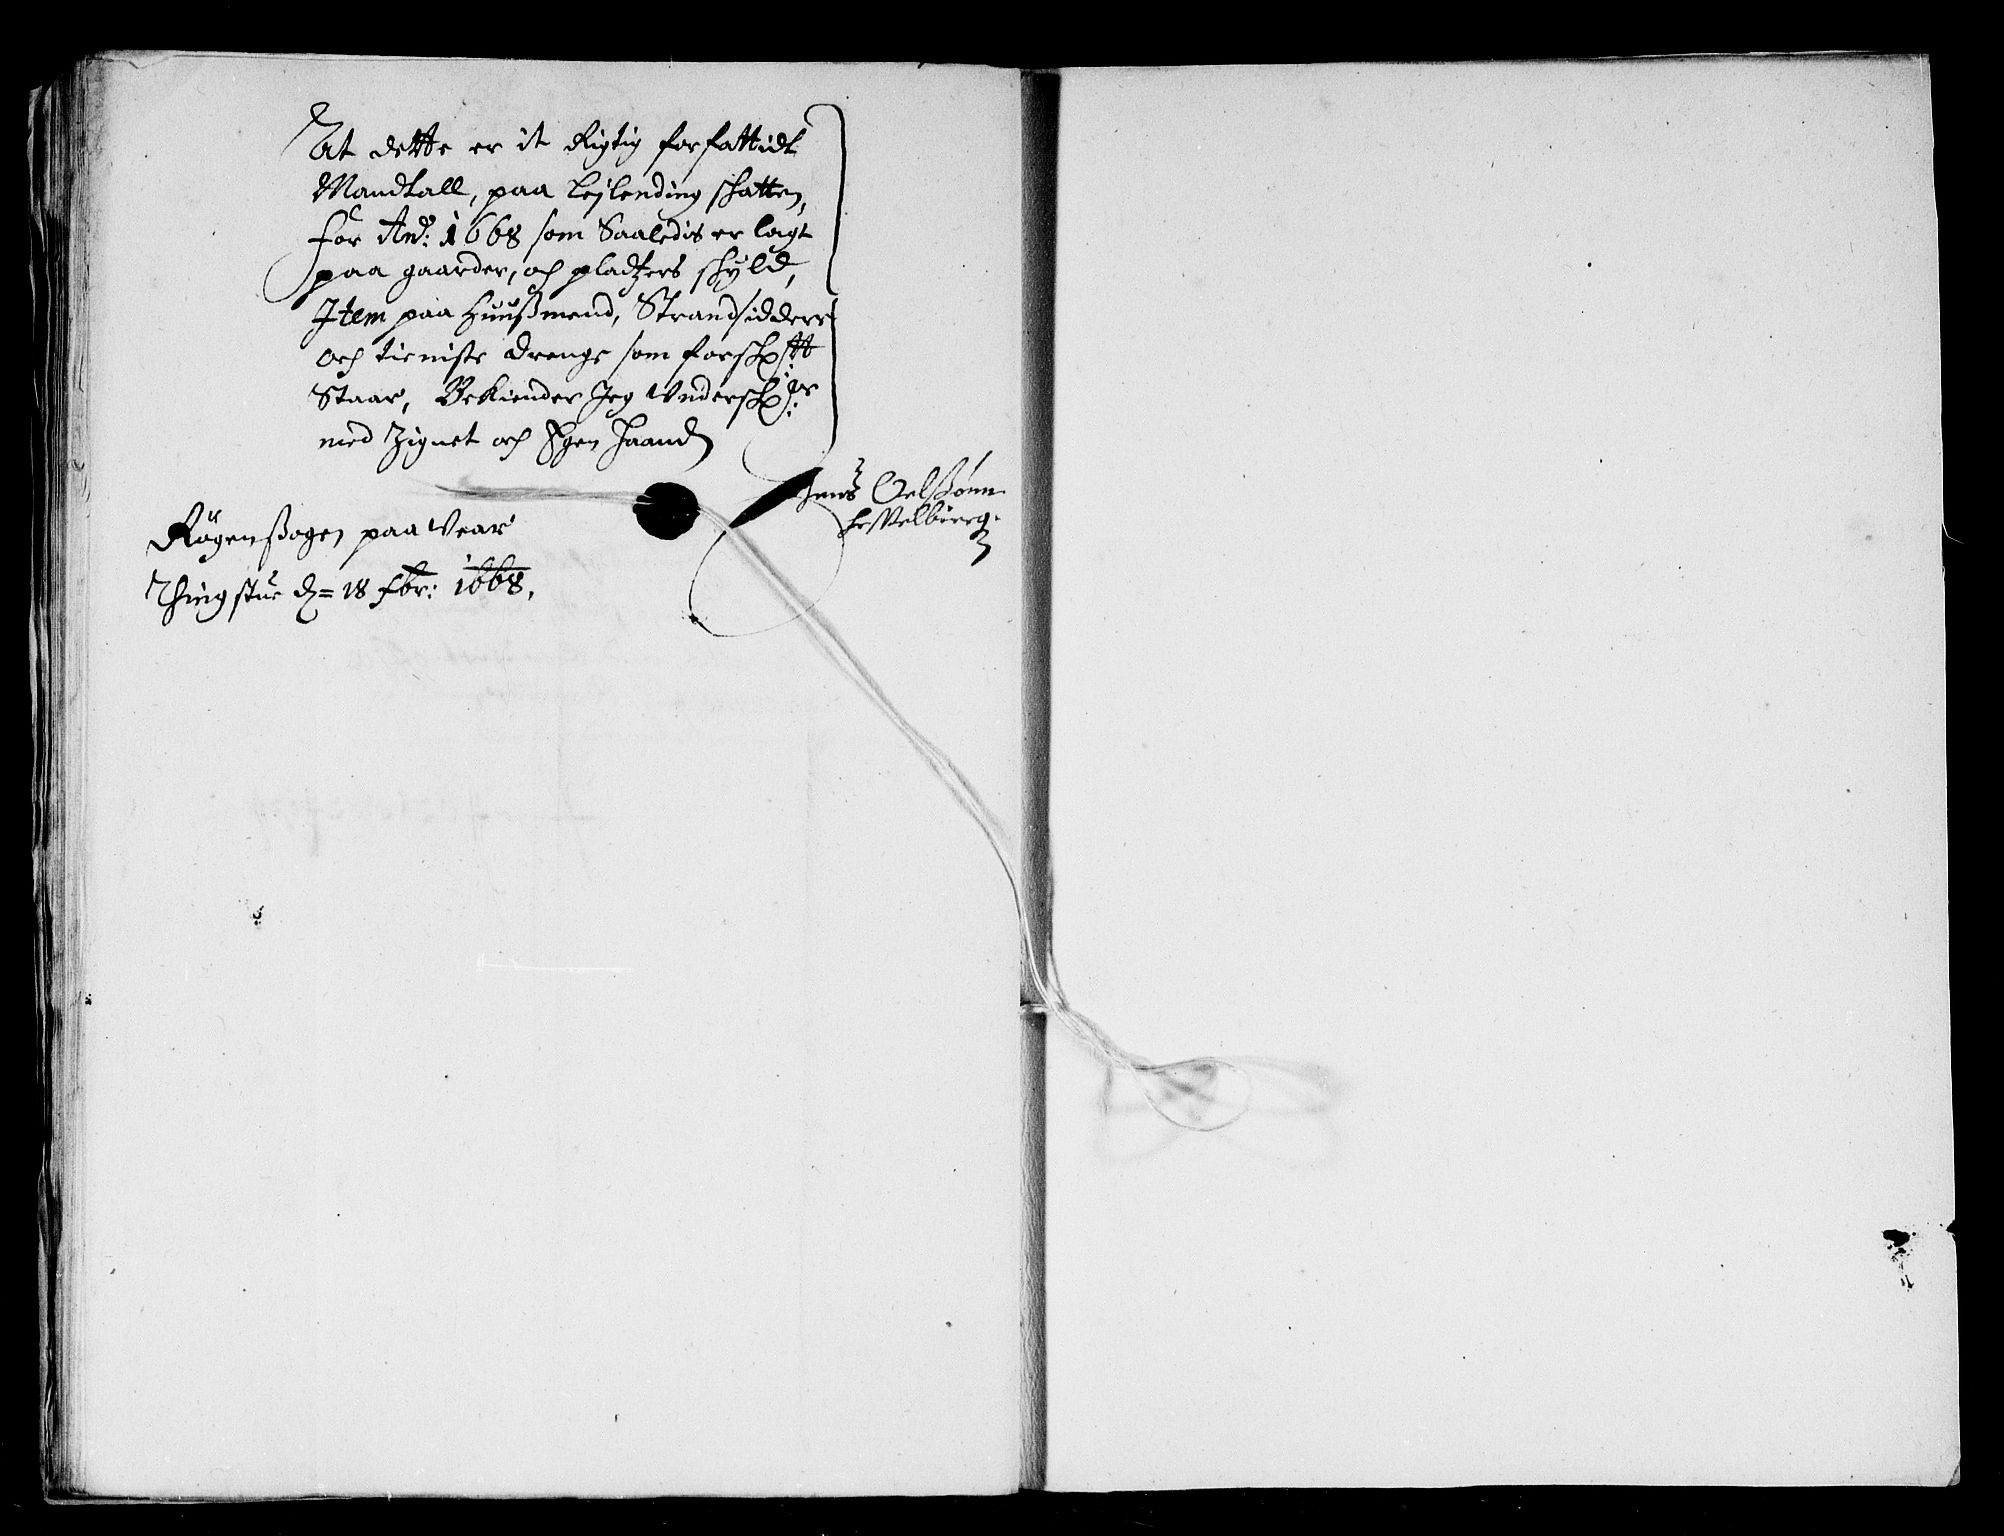 At dette er it Rigtig forfattidt
Mandtall, paa Leylending shatten,
for Ano: 1668 som Saaledis er lagt
paa gaarder, och pladtzers shyld,
Item paa Huußmend, Strandsiddere
och tieniste drenge som forsch:tt
Staar, Bekiender Jeg Undersch:r
med Zignet och Egen Haand
Jens Oelßönn
Røgenßogen paa Wear
Thingstue d= 18 fbr: 1668,